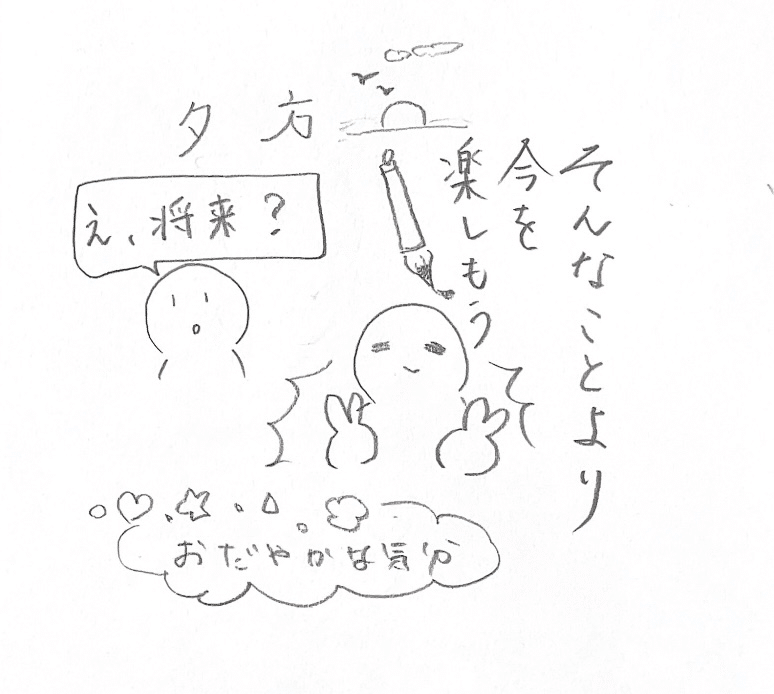 夕方
え、将来？
そんなことより
今を
楽しもう
おだやかな気分